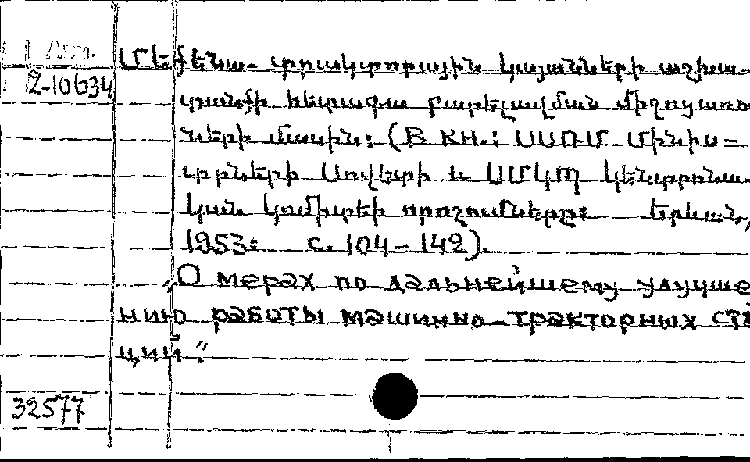 Մեքենա-տրակտորային կայանների աշխա-
2-10634
տանքի հետագա բարելավման միջոցառու
ների մասին: (В кн.: ՍՍՌՄ Մինիս-
տրների Սովետի և ՍՄԿՊ կենտրոնա-
կան կոմիտեի որոշումները: Երևան,
1953: с. 104-142).
„О мерах по дальнейшему улучше
нию работы машинно-тракторных ста
ций".
32577